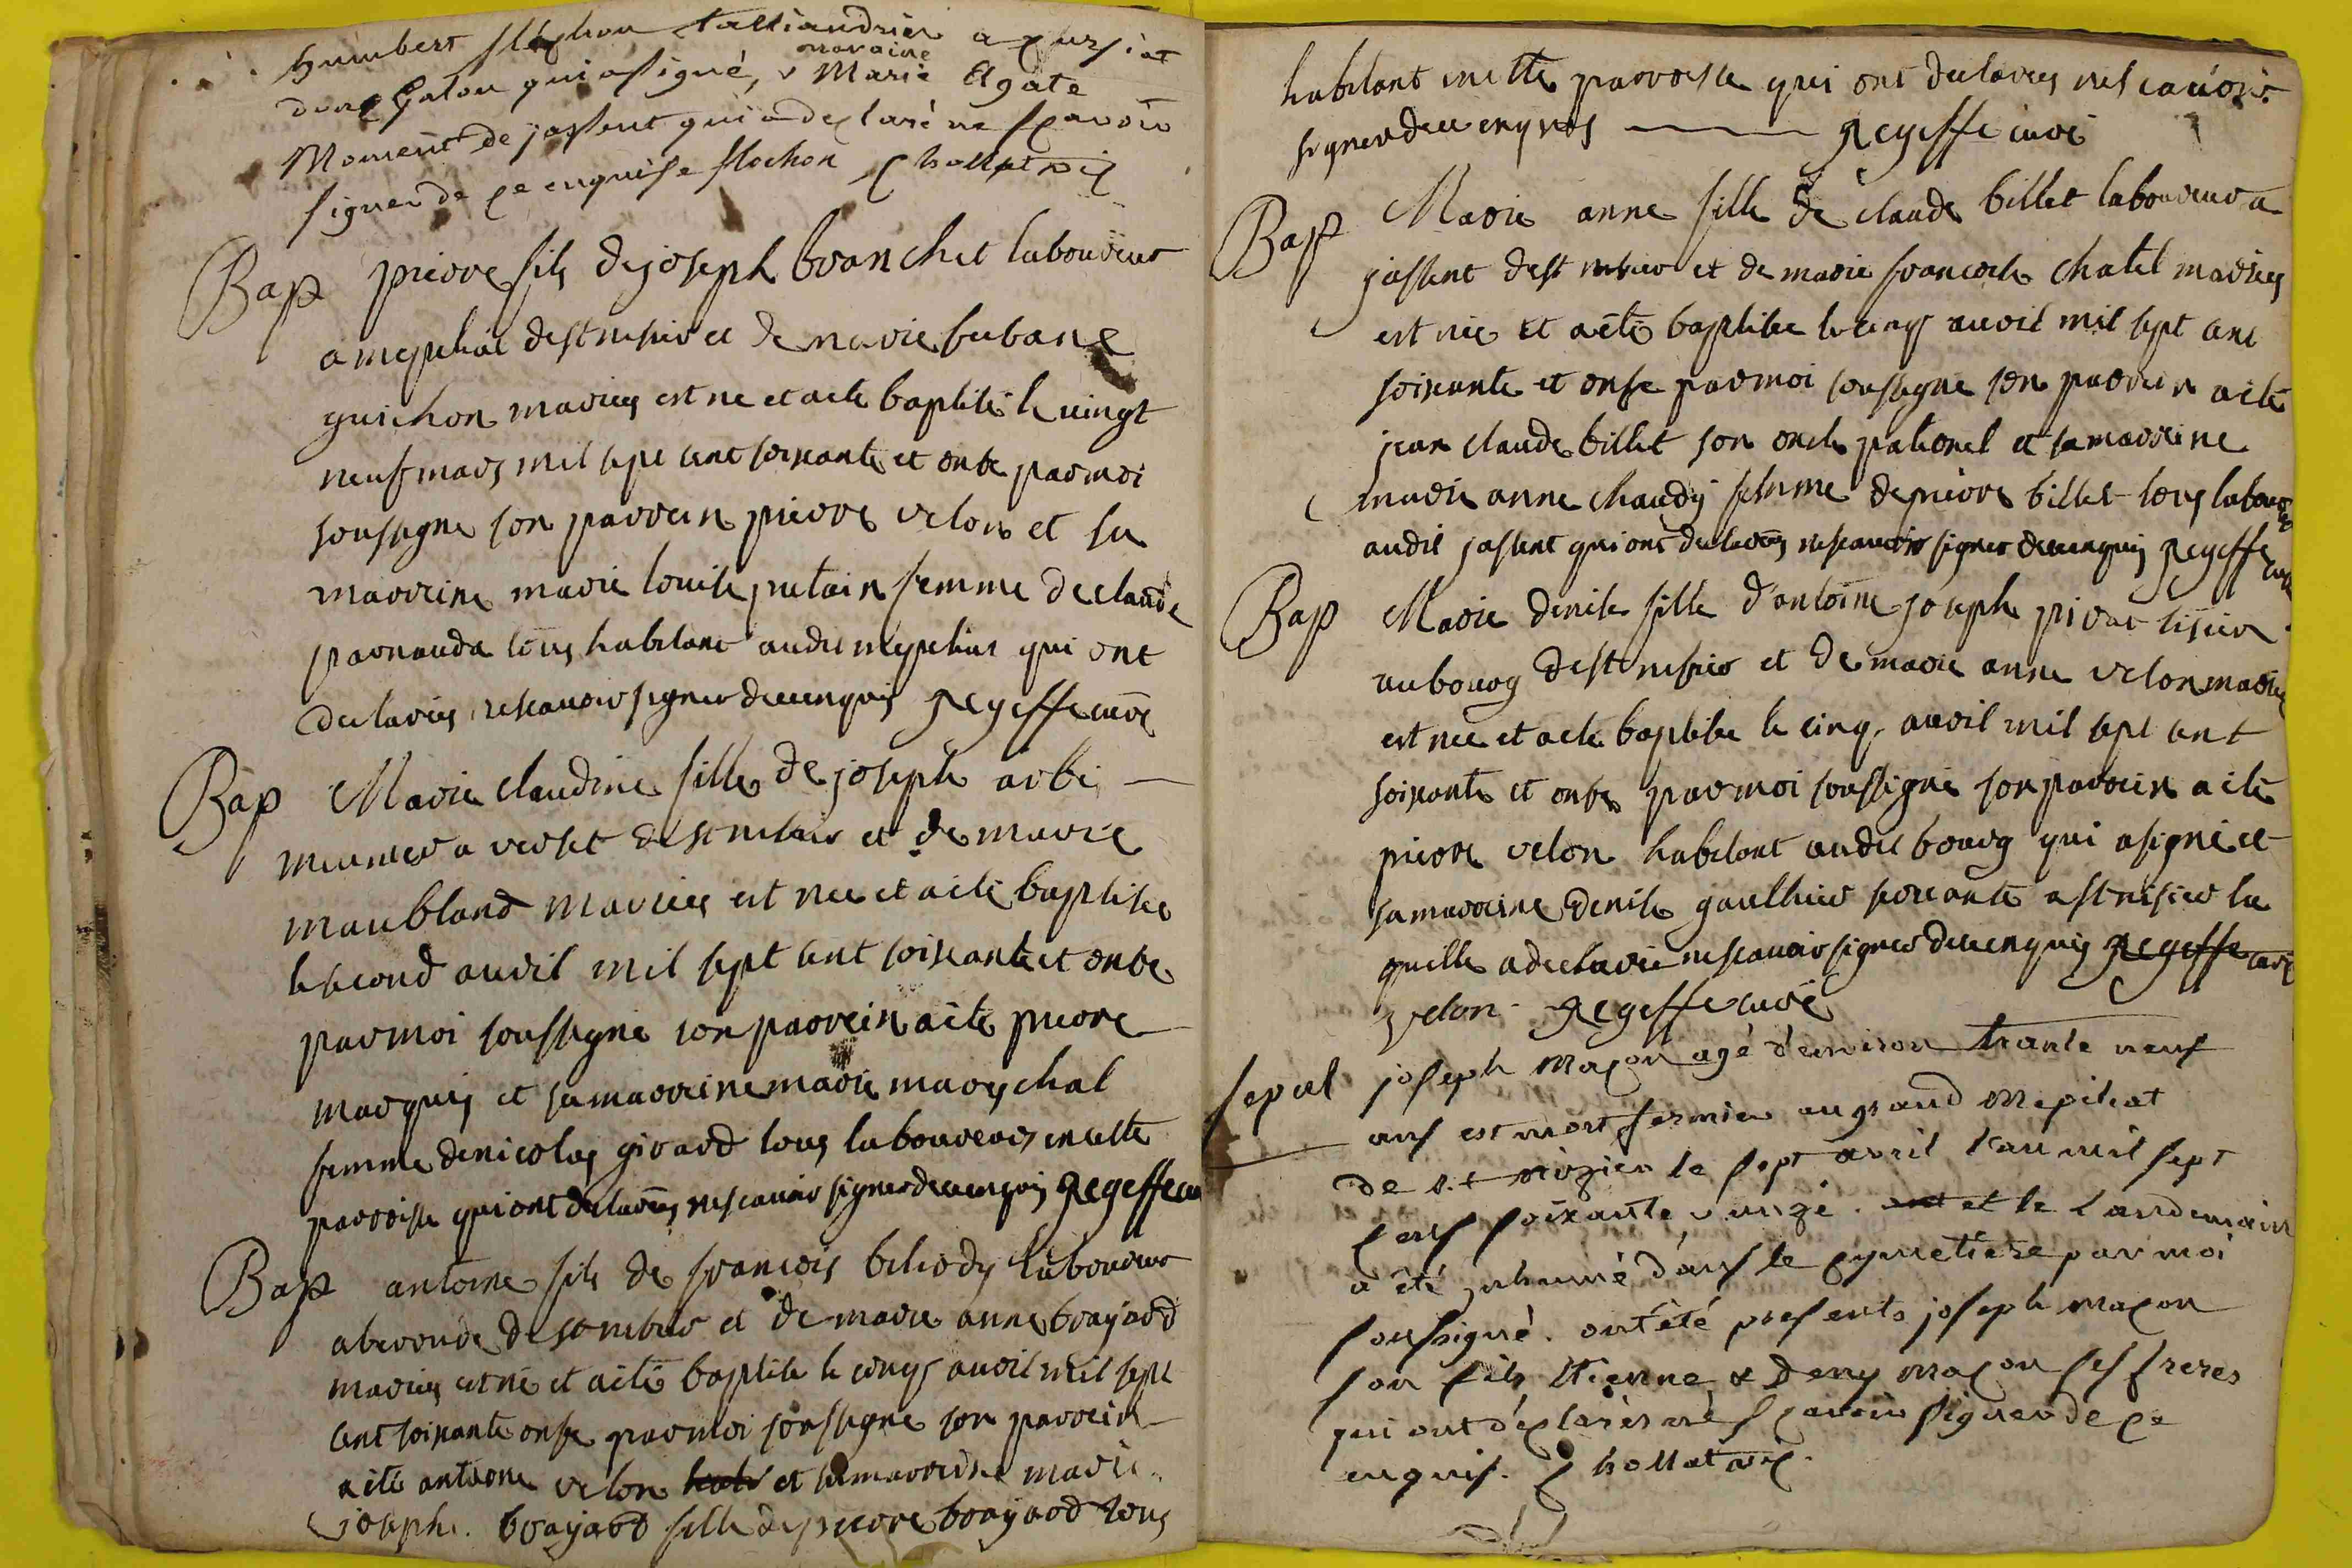 humbert flochon talliandrier a cursiat
marraine
dont galou qui a signé, & Marie Agate
Moment de jassent qui a declaré ne sçavoir
signer de ce enquise flochon Chollat vic
Bap pierre fils de joseph branchet laboureur
a mepiliat de st nisier et de marie
guichon mariés est né et a eté baptisé le vingt
neuf mars mil sept cent soisante et onse par moi
soussigné son parrein pierre velon et sa
marreine marie louise putain femme de claude
parnauda tous habitant audit mepiliat qui ont
declarés ne scauoir signer de ce enquis Regeffe curé
Bap Marie claudine fille de joseph arbi
meunier a verset de st nisier et de marie
maubland mariés est née et a eté baptisée
le second auril mil sept cent soisante et onse
par moi soussigné son parrein a eté pierre
marquis et sa marreine marie marychal
femme de nicolas girard tous laboureurs en cette
parroisse qui ont declarés ne scauoir signer de ce enquis Regeffe cu
Bap antoine fils de francois biliody laboureur
a beronde de st nisier et de marie anne brayard
mariés est né et a eté baptisé le cinq auril mil sept
cent soisante onse par moi soussigné son parrein
a eté antoine velon et sa marreine marie
joseph. brayard fille de pierre brayard tous
habitant en cette parroisse qui ont declarés ne scauoir
signer de ce enquis Regeffe curé
Bap Marie anne fille de claude billet laboureur a
jassent de st nisier et de marie francoise chatel mariés
est née et a eté baptisée le cinq auril mil sept cent
soisante et onse par moi soussigné son parrein a eté
jean claude billet son oncle paternel et sa marreine
marie anne chaudy femme de pierre billet tous labour
audit jassent qui ont declarés ne scauoir signer de ce enquis Regeffe curé
Bap Marie denise fille d'antoine joseph pirat tisier
au bourg de st nisier et de marie anne velon mariés
est née et a eté baptisée le cinq auril mil sept cent
soisante et onse par moi soussigné son parrein a eté
pierre velon habitant audit bourg qui a signé et
sa marreine denise gaulthier seruante a st nisier la
quelle a declaré ne scauoir signer de ce enquis Regeffe curé
velon Regeffe curé
sepul joseph maçon agé d'environ trante neuf
ans est mort fermier au grand mepiliat
de st nizier le sept avril l'an mil sept
cens soixante & unze. et le landemain
a été inhumé dans le cymetiere par moi
soussigné. ont été presents joseph maçon
son fils Etienne & Deny maçon ses freres
qui ont déclarés né sçavoir signer de ce
enquis. Chollat vic.